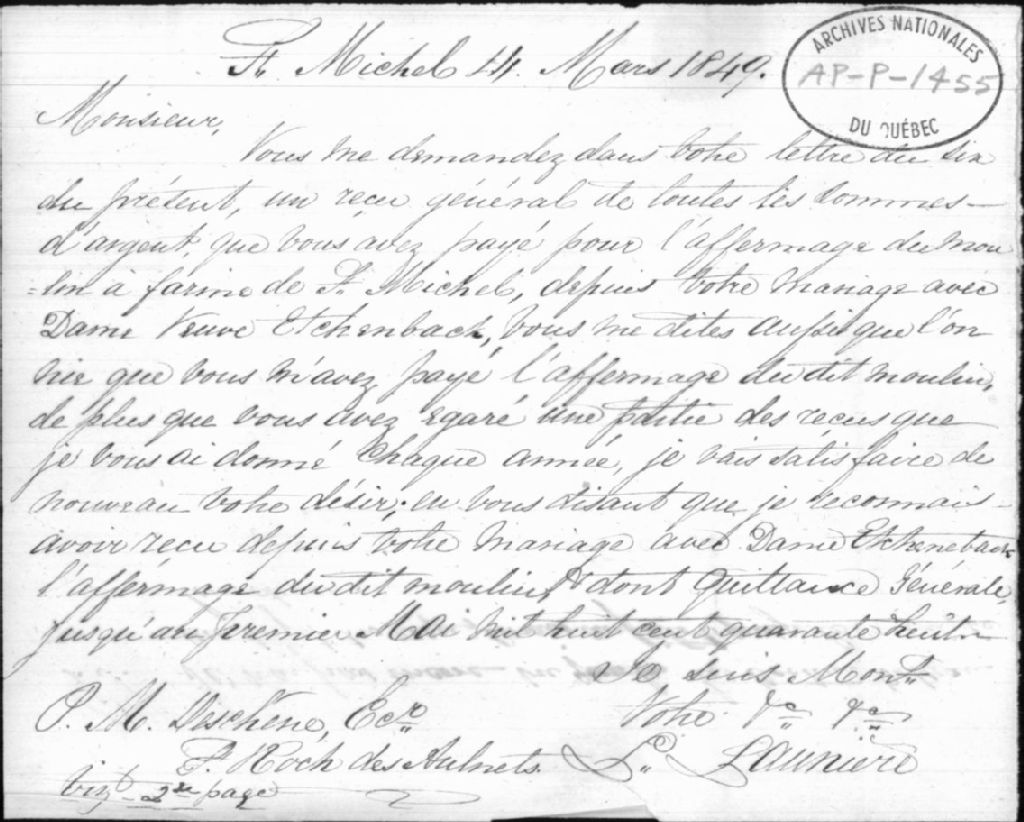 St. Michel 14 Mars 1849.
ARCHIVES NATIONALES
AP-P-1455
DU QUÉBEC
Monsieur,
Vous me demandez dans votre lettre du six
du présent, un recu général de toutes les sommes
d'argent, que vous avez payé pour l'affermage du mou
=lin à farine de St. Michel, depuis votre mariage avec
Dame Veuve Etchenback, vous me dites aussi que l'on
nie que vous m'avez payé l'affermage du dit moulin,
de plus que vous avez egaré une partie des recus que
je vous ai donné chaque année, je vais satisfaire de
nouveau votre désir, en vous disant que je reconnais
avoir recu depuis votre mariage avec Dame Etchenback
l'affermage du dit moulin, dont quittance Générale,
jusqu'au premier Mai mil huit cent quarante huit
Je suis Monsr.
P. M. Deschêne, Ecr.
Votre &c &c
St. Roch des Aulnets.
L. Launière
viz 2de page